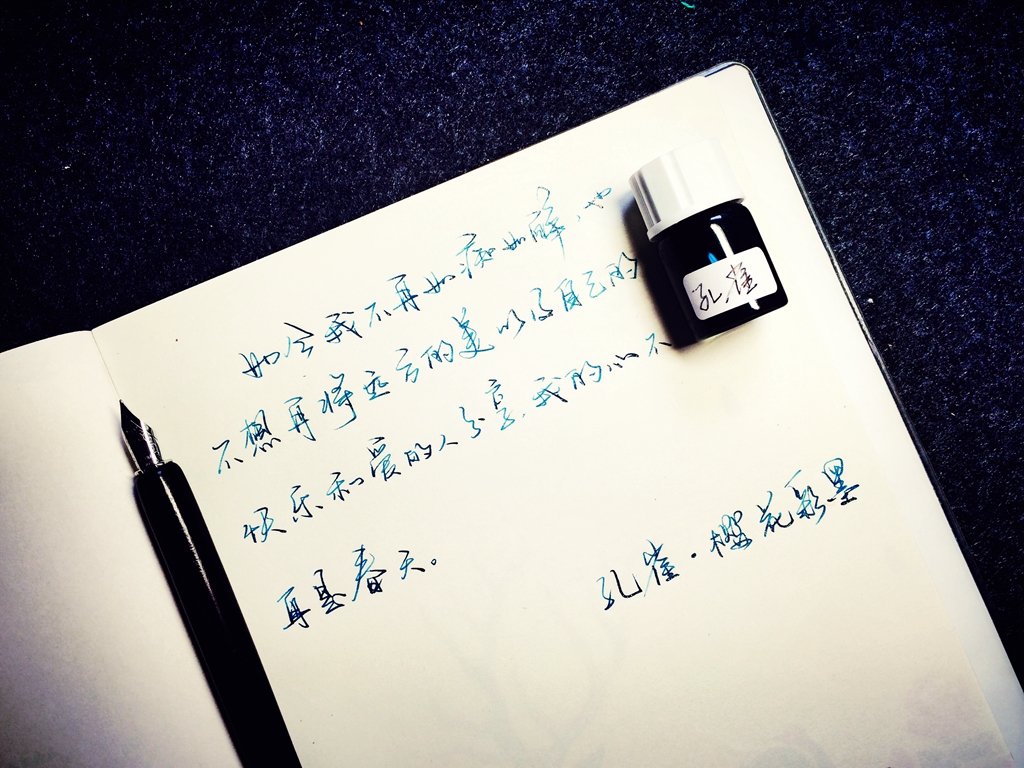 如今我不再如痴如醉,也
不想再将远方的美以及自己的
快乐和爱的人分享,我的心不
再是春天。
孔雀·樱花彩墨
孔雀